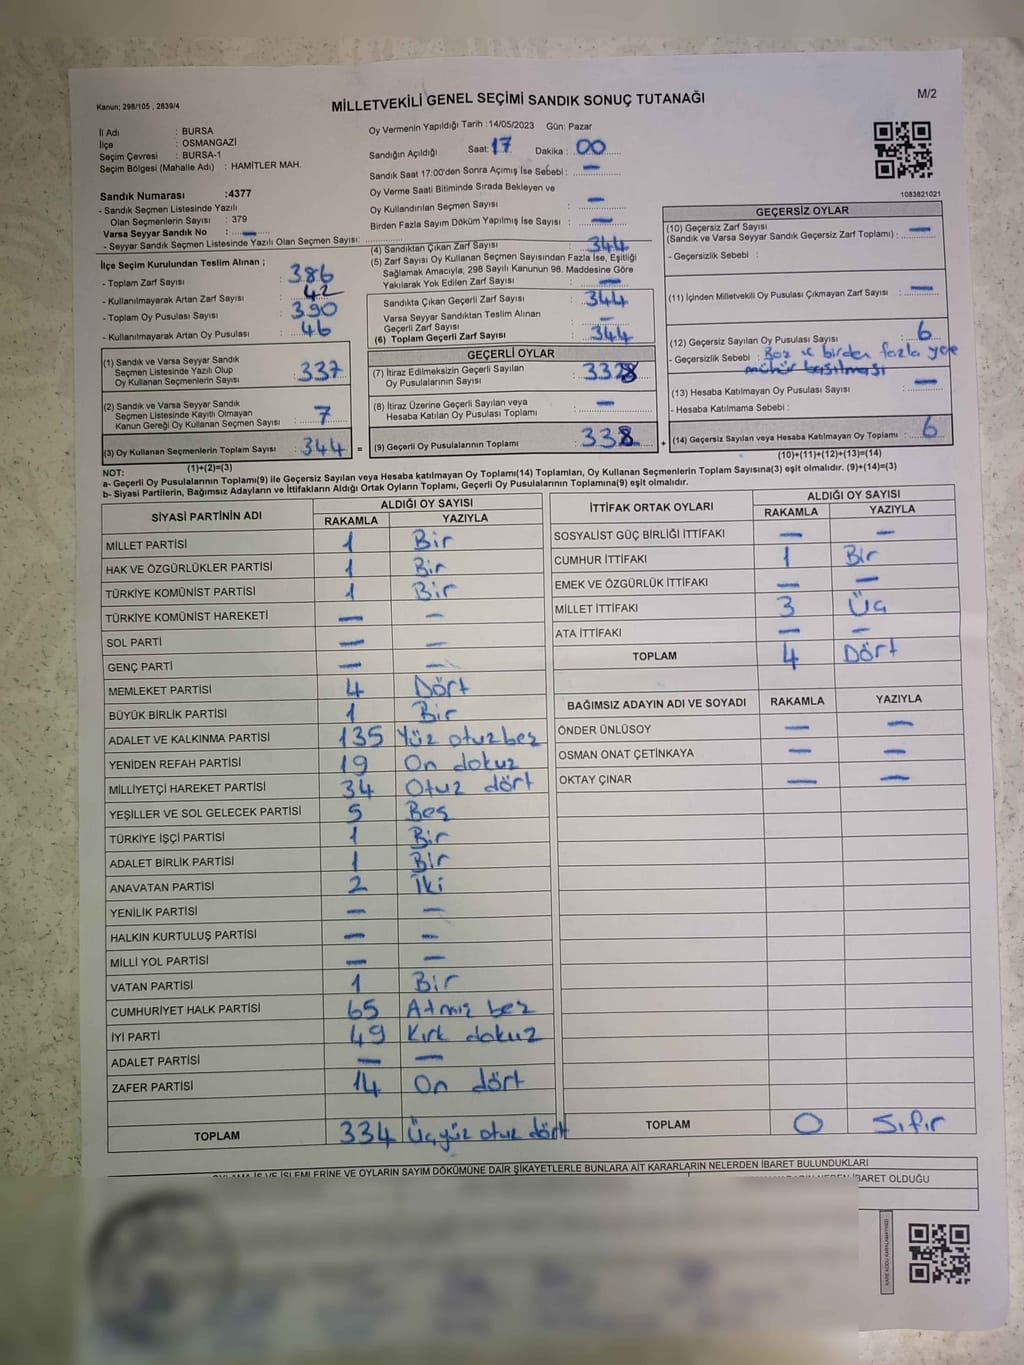 Kanun; 298/105 , 2839/4
MİLLETVEKİLİ GENEL SEÇİMİ SANDIK SONUÇ TUTANAĞI
M/2
İl Adı : BURSA
İlçe : OSMANGAZİ
Seçim Çevresi : BURSA-1
Seçim Bölgesi (Mahalle Adı) : HAMİTLER MAH.
Sandık Numarası :4377
- Sandık Seçmen Listesinde Yazılı
Olan Seçmenlerin Sayısı : 379
Varsa Seyyar Sandık No : —
- Seyyar Sandık Seçmen Listesinde Yazılı Olan Seçmen Sayısı:
Oy Vermenin Yapıldığı Tarih :14/05/2023 Gün: Pazar
Sandığın Açıldığı Saat: 17 Dakika : 00
Sandık Saat 17:00'den Sonra Açımış İse Sebebi : —
Oy Verme Saati Bitiminde Sırada Bekleyen ve
Oy Kullandırılan Seçmen Sayısı : —
Birden Fazla Sayım Döküm Yapılmış İse Sayısı : —
1083821021
İlçe Seçim Kurulundan Teslim Alınan ;
- Toplam Zarf Sayısı : 386
- Kullanılmayarak Artan Zarf Sayısı : 42
- Toplam Oy Pusulası Sayısı : 390
- Kullanılmayarak Artan Oy Pusulası : 46
(1) Sandık ve Varsa Seyyar Sandık
Seçmen Listesinde Yazılı Olup
Oy Kullanan Seçmenlerin Sayısı : 337
(2) Sandık ve Varsa Seyyar Sandık
Seçmen Listesinde Kayıtlı Olmayan
Kanun Gereği Oy Kullanan Seçmen Sayısı : 7
(3) Oy Kullanan Seçmenlerin Toplam Sayısı : 344 =
(1)+(2)=(3)
(4) Sandıktan Çıkan Zarf Sayısı : 344
(5) Zarf Sayısı Oy Kullanan Seçmen Sayısından Fazla İse, Eşitliği
Sağlamak Amacıyla; 298 Sayılı Kanunun 98. Maddesine Göre
Yakılarak Yok Edilen Zarf Sayısı : —
Sandıkta Çıkan Geçerli Zarf Sayısı : 344
Varsa Seyyar Sandıktan Teslim Alınan
Geçerli Zarf Sayısı : —
(6) Toplam Geçerli Zarf Sayısı : 344
GEÇERLİ OYLAR
(7) İtiraz Edilmeksizin Geçerli Sayılan
Oy Pusulalarının Sayısı : 338
(8) İtiraz Üzerine Geçerli Sayılan veya
Hesaba Katılan Oy Pusulası Toplamı : —
(9) Geçerli Oy Pusulalarının Toplamı : 338 +
GEÇERSİZ OYLAR
(10) Geçersiz Zarf Sayısı
(Sandık ve Varsa Seyyar Sandık Geçersiz Zarf Toplamı) : —
- Geçersizlik Sebebi :
(11) İçinden Milletvekili Oy Pusulası Çıkmayan Zarf Sayısı : —
(12) Geçersiz Sayılan Oy Pusulası Sayısı : 6
- Geçersizlik Sebebi : Boş ve birden fazla yere
mühür basılması
(13) Hesaba Katılmayan Oy Pusulası Sayısı : —
- Hesaba Katılmama Sebebi :
(14) Geçersiz Sayılan veya Hesaba Katılmayan Oy Toplamı : 6
(10)+(11)+(12)+(13)=(14)
NOT:
a- Geçerli Oy Pusulalarının Toplamı(9) ile Geçersiz Sayılan veya Hesaba katılmayan Oy Toplamı(14) Toplamları, Oy Kullanan Seçmenlerin Toplam Sayısına(3) eşit olmalıdır. (9)+(14)=(3)
b- Siyasi Partilerin, Bağımsız Adayların ve İttifakların Aldığı Ortak Oyların Toplamı, Geçerli Oy Pusulalarının Toplamına(9) eşit olmalıdır.
SİYASİ PARTİNİN ADI ALDIĞI OY SAYISI
RAKAMLA YAZIYLA
MİLLET PARTİSİ 1 Bir
HAK VE ÖZGÜRLÜKLER PARTİSİ 1 Bir
TÜRKİYE KOMÜNİST PARTİSİ 1 Bir
TÜRKİYE KOMÜNİST HAREKETİ — —
SOL PARTİ — —
GENÇ PARTİ — —
MEMLEKET PARTİSİ 4 Dört
BÜYÜK BİRLİK PARTİSİ 1 Bir
ADALET VE KALKINMA PARTİSİ 135 Yüz otuzbeş
YENİDEN REFAH PARTİSİ 19 On dokuz
MİLLİYETÇİ HAREKET PARTİSİ 34 Otuz dört
YEŞİLLER VE SOL GELECEK PARTİSİ 5 Beş
TÜRKİYE İŞÇİ PARTİSİ 1 Bir
ADALET BİRLİK PARTİSİ 1 Bir
ANAVATAN PARTİSİ 2 İki
YENİLİK PARTİSİ — —
HALKIN KURTULUŞ PARTİSİ — —
MİLLİ YOL PARTİSİ — —
VATAN PARTİSİ 1 Bir
CUMHURİYET HALK PARTİSİ 65 Atmış beş
İYİ PARTİ 49 Kırk dokuz
ADALET PARTİSİ — —
ZAFER PARTİSİ 14 On dört
TOPLAM 334 Üçyüz otuz dört
İTTİFAK ORTAK OYLARI ALDIĞI OY SAYISI
RAKAMLA YAZIYLA
SOSYALİST GÜÇ BİRLİĞİ İTTİFAKI — —
CUMHUR İTTİFAKI 1 Bir
EMEK VE ÖZGÜRLÜK İTTİFAKI — —
MİLLET İTTİFAKI 3 Üç
ATA İTTİFAKI — —
TOPLAM 4 Dört
BAĞIMSIZ ADAYIN ADI VE SOYADI RAKAMLA YAZIYLA
ÖNDER ÜNLÜSOY — —
OSMAN ONAT ÇETİNKAYA — —
OKTAY ÇINAR — —
TOPLAM 0 Sıfır
OYLAMA İŞ VE İŞLEMLERİNE VE OYLARIN SAYIM DÖKÜMÜNE DAİR ŞİKAYETLERLE BUNLARA AİT KARARLARIN NELERDEN İBARET BULUNDUKLARI
İBARET OLDUĞU